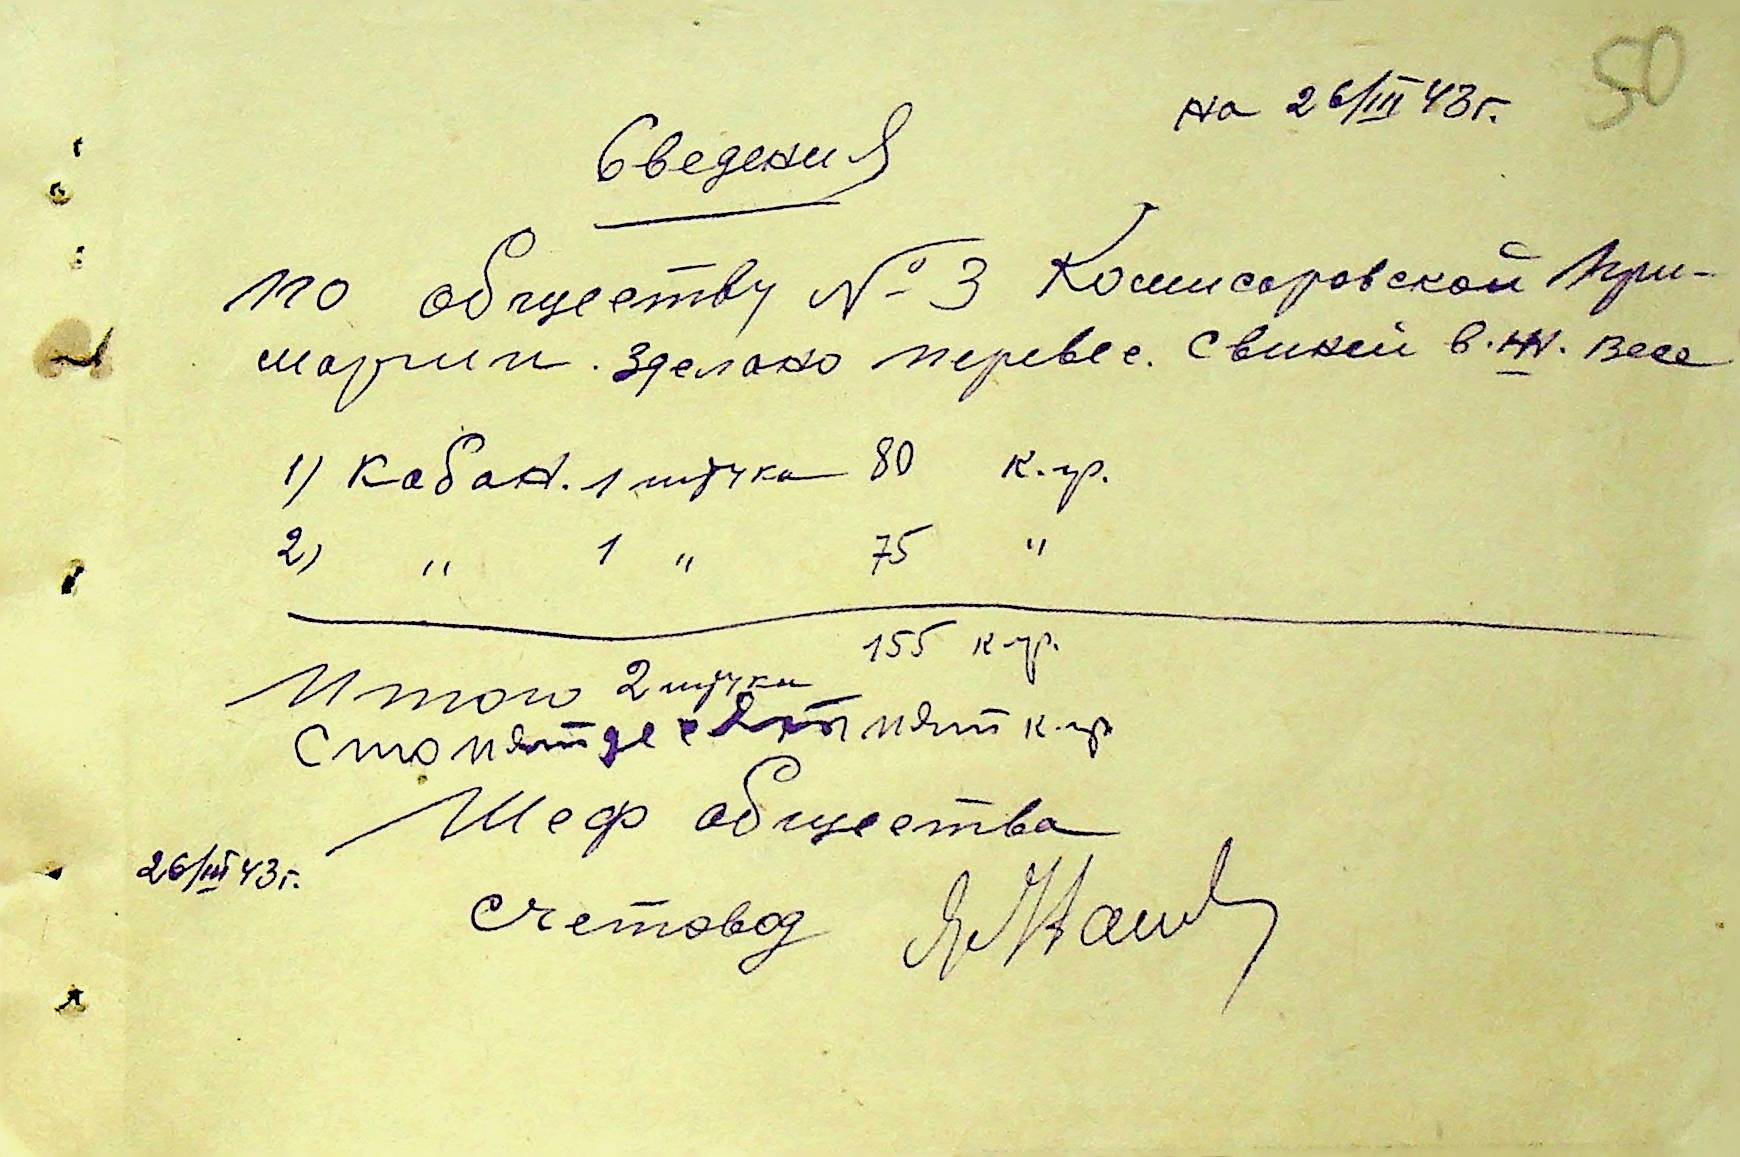 50
на 26/III 43г.
Сведения
по обществу № 3 Комисаровской При-
марии. Зделано перевес. Свиней в.ж. весе
1) Кабан. 1 штука 80 к.гр.
2) " 1 " 75 "
155 к.гр.
Итого 2 штука
Сто пятдесят пят к.гр
Шеф общества
26/III 43г.
Счетовод